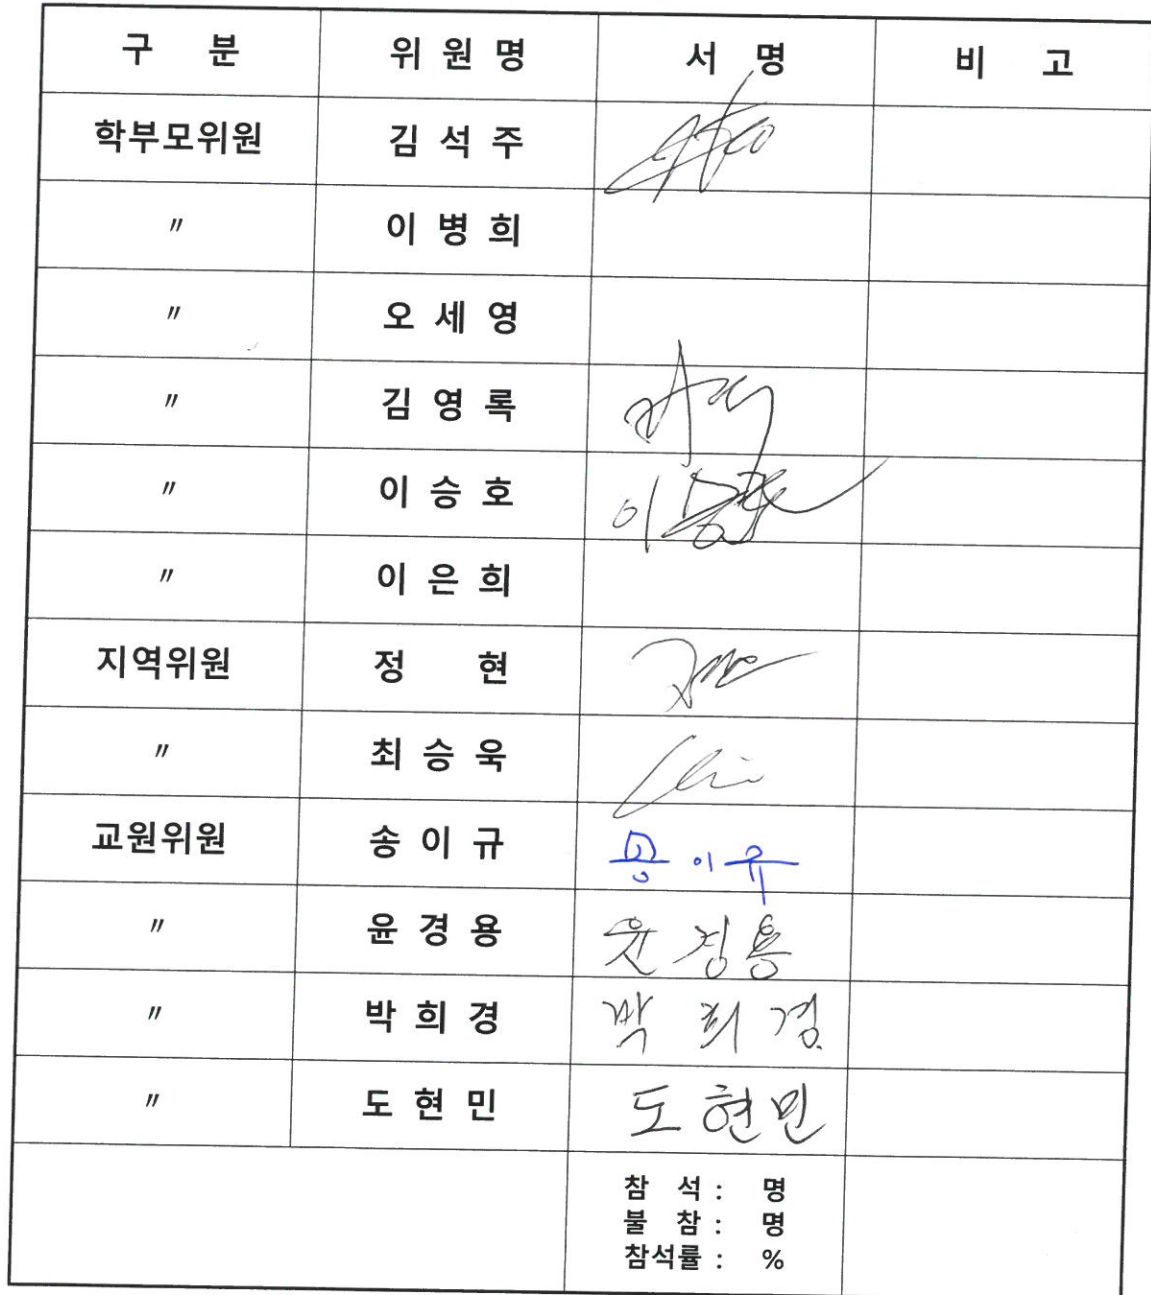 구 분 위 원 명 서 명 비 고
학부모위원 김 석 주
〃 이 병 희
〃 오 세 영
〃 김 영 록
〃 이 승 호 이승호
〃 이 은 희
지역위원 정 현
〃 최 승 욱
교원위원 송 이 규 송이규
〃 윤 경 용 윤경용
〃 박 희 경 박희경
〃 도 현 민 도현민
참 석 : 명
불 참 : 명
참석률 : %